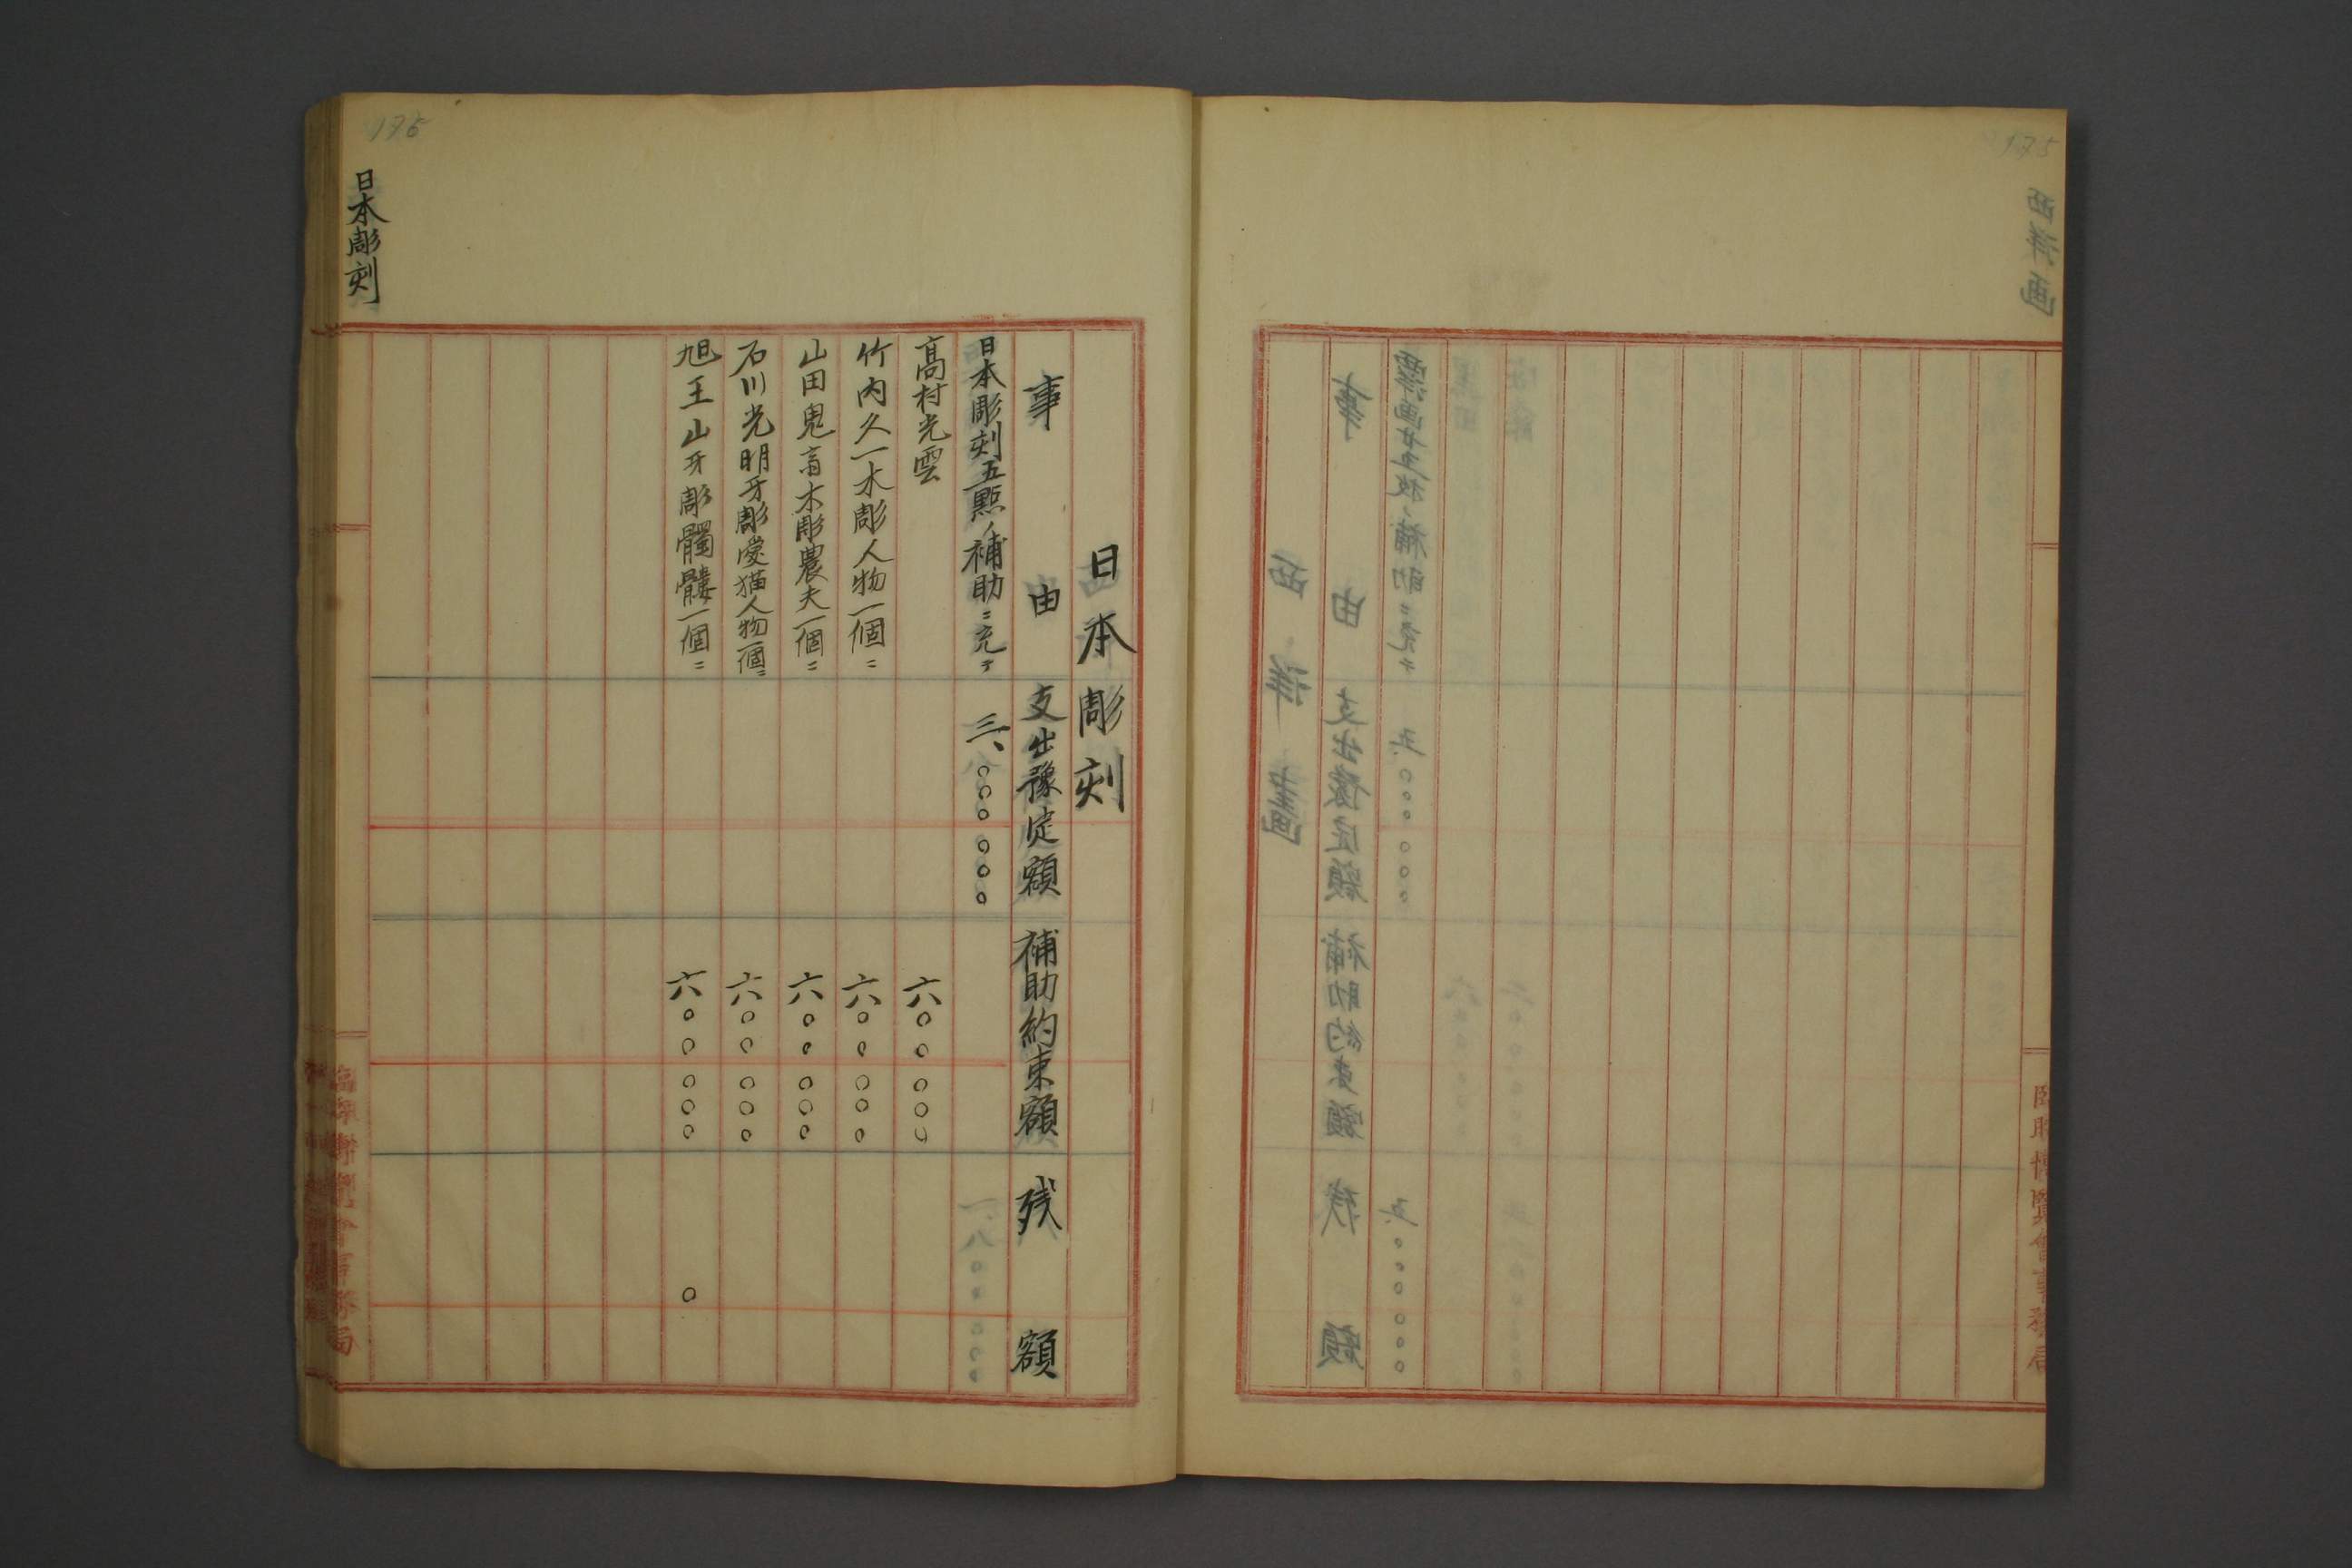 175
西洋画
西洋畫
事由 支出豫定額 補助約束額 残額
洋画廿五枚ノ補助ニ充テ 五、〇〇〇〇〇〇 五、〇〇〇〇〇〇
臨時博覧會事務局
176
日本彫刻
日本彫刻
事由 支出豫定額 補助約束額 残額
日本彫刻五點ノ補助ニ充テ 三、〇〇〇〇〇〇
髙村光雲 六〇〇〇〇〇
竹内久一木彫人物一個ニ 六〇〇〇〇〇
山田鬼斎木彫農夫一個ニ 六〇〇〇〇〇
石川光明牙彫愛猫人物一個ニ 六〇〇〇〇〇
旭玉山牙彫髑髏一個ニ 六〇〇〇〇〇 〇
臨時博覧會事務局